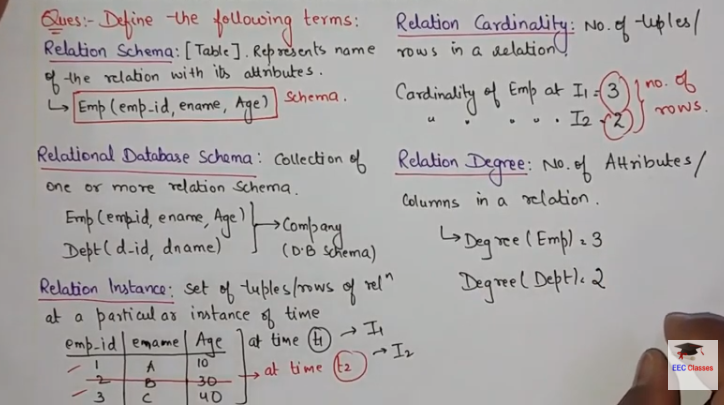 Ques:- Define the following terms:
Relation Schema: [Table]. Represents name
of the relation with its attributes.
↳ Emp(emp-id, ename, Age) Schema.
Relational Database Schema: Collection of
one or more relation schema.
Emp(emp-id, ename, Age)
Dept(d-id, dname)
→ Company
(D.B schema)
Relation Instance: set of tuples/rows of relⁿ
at a particular instance of time
emp-id | ename | Age
1 | A | 10
2 | B | 30
3 | C | 40
at time t1 → I1
→ at time t2 → I2
Relation Cardinality: No. of tuples/
rows in a relation.
Cardinality of Emp at I1 = 3
" " " " " I2 = 2
no. of
rows.
Relation Degree: No. of Attributes/
Columns in a relation.
↳ Degree(Emp) = 3
Degree(Dept) = 2
EEC Classes